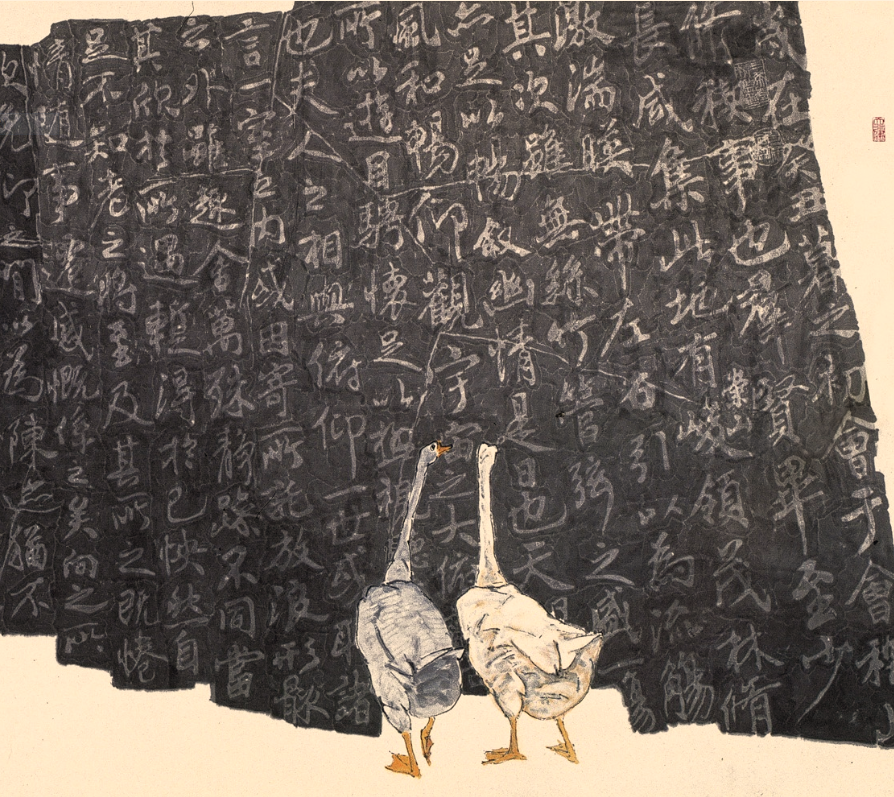 歲在癸丑暮之初會于會稽山
脩禊事也羣賢畢至少
長咸集此地有崇山峻領茂林脩
激湍暎帶左右引以為流觴
其次雖無絲竹管弦之盛一觴
亦足以暢叙幽情是日也天
風和暢仰觀宇宙之大俯
所以遊目騁懷足以極視
也夫人之相與俯仰一世或取諸
言一室之内或因寄所託放浪形骸
之外雖趣舍萬殊靜躁不同當
其欣於所遇蹔得於己怏然自
足不知老之將至及其所之既惓
情隨事遷感慨係之矣向之所
俛仰之間以為陳迹猶不